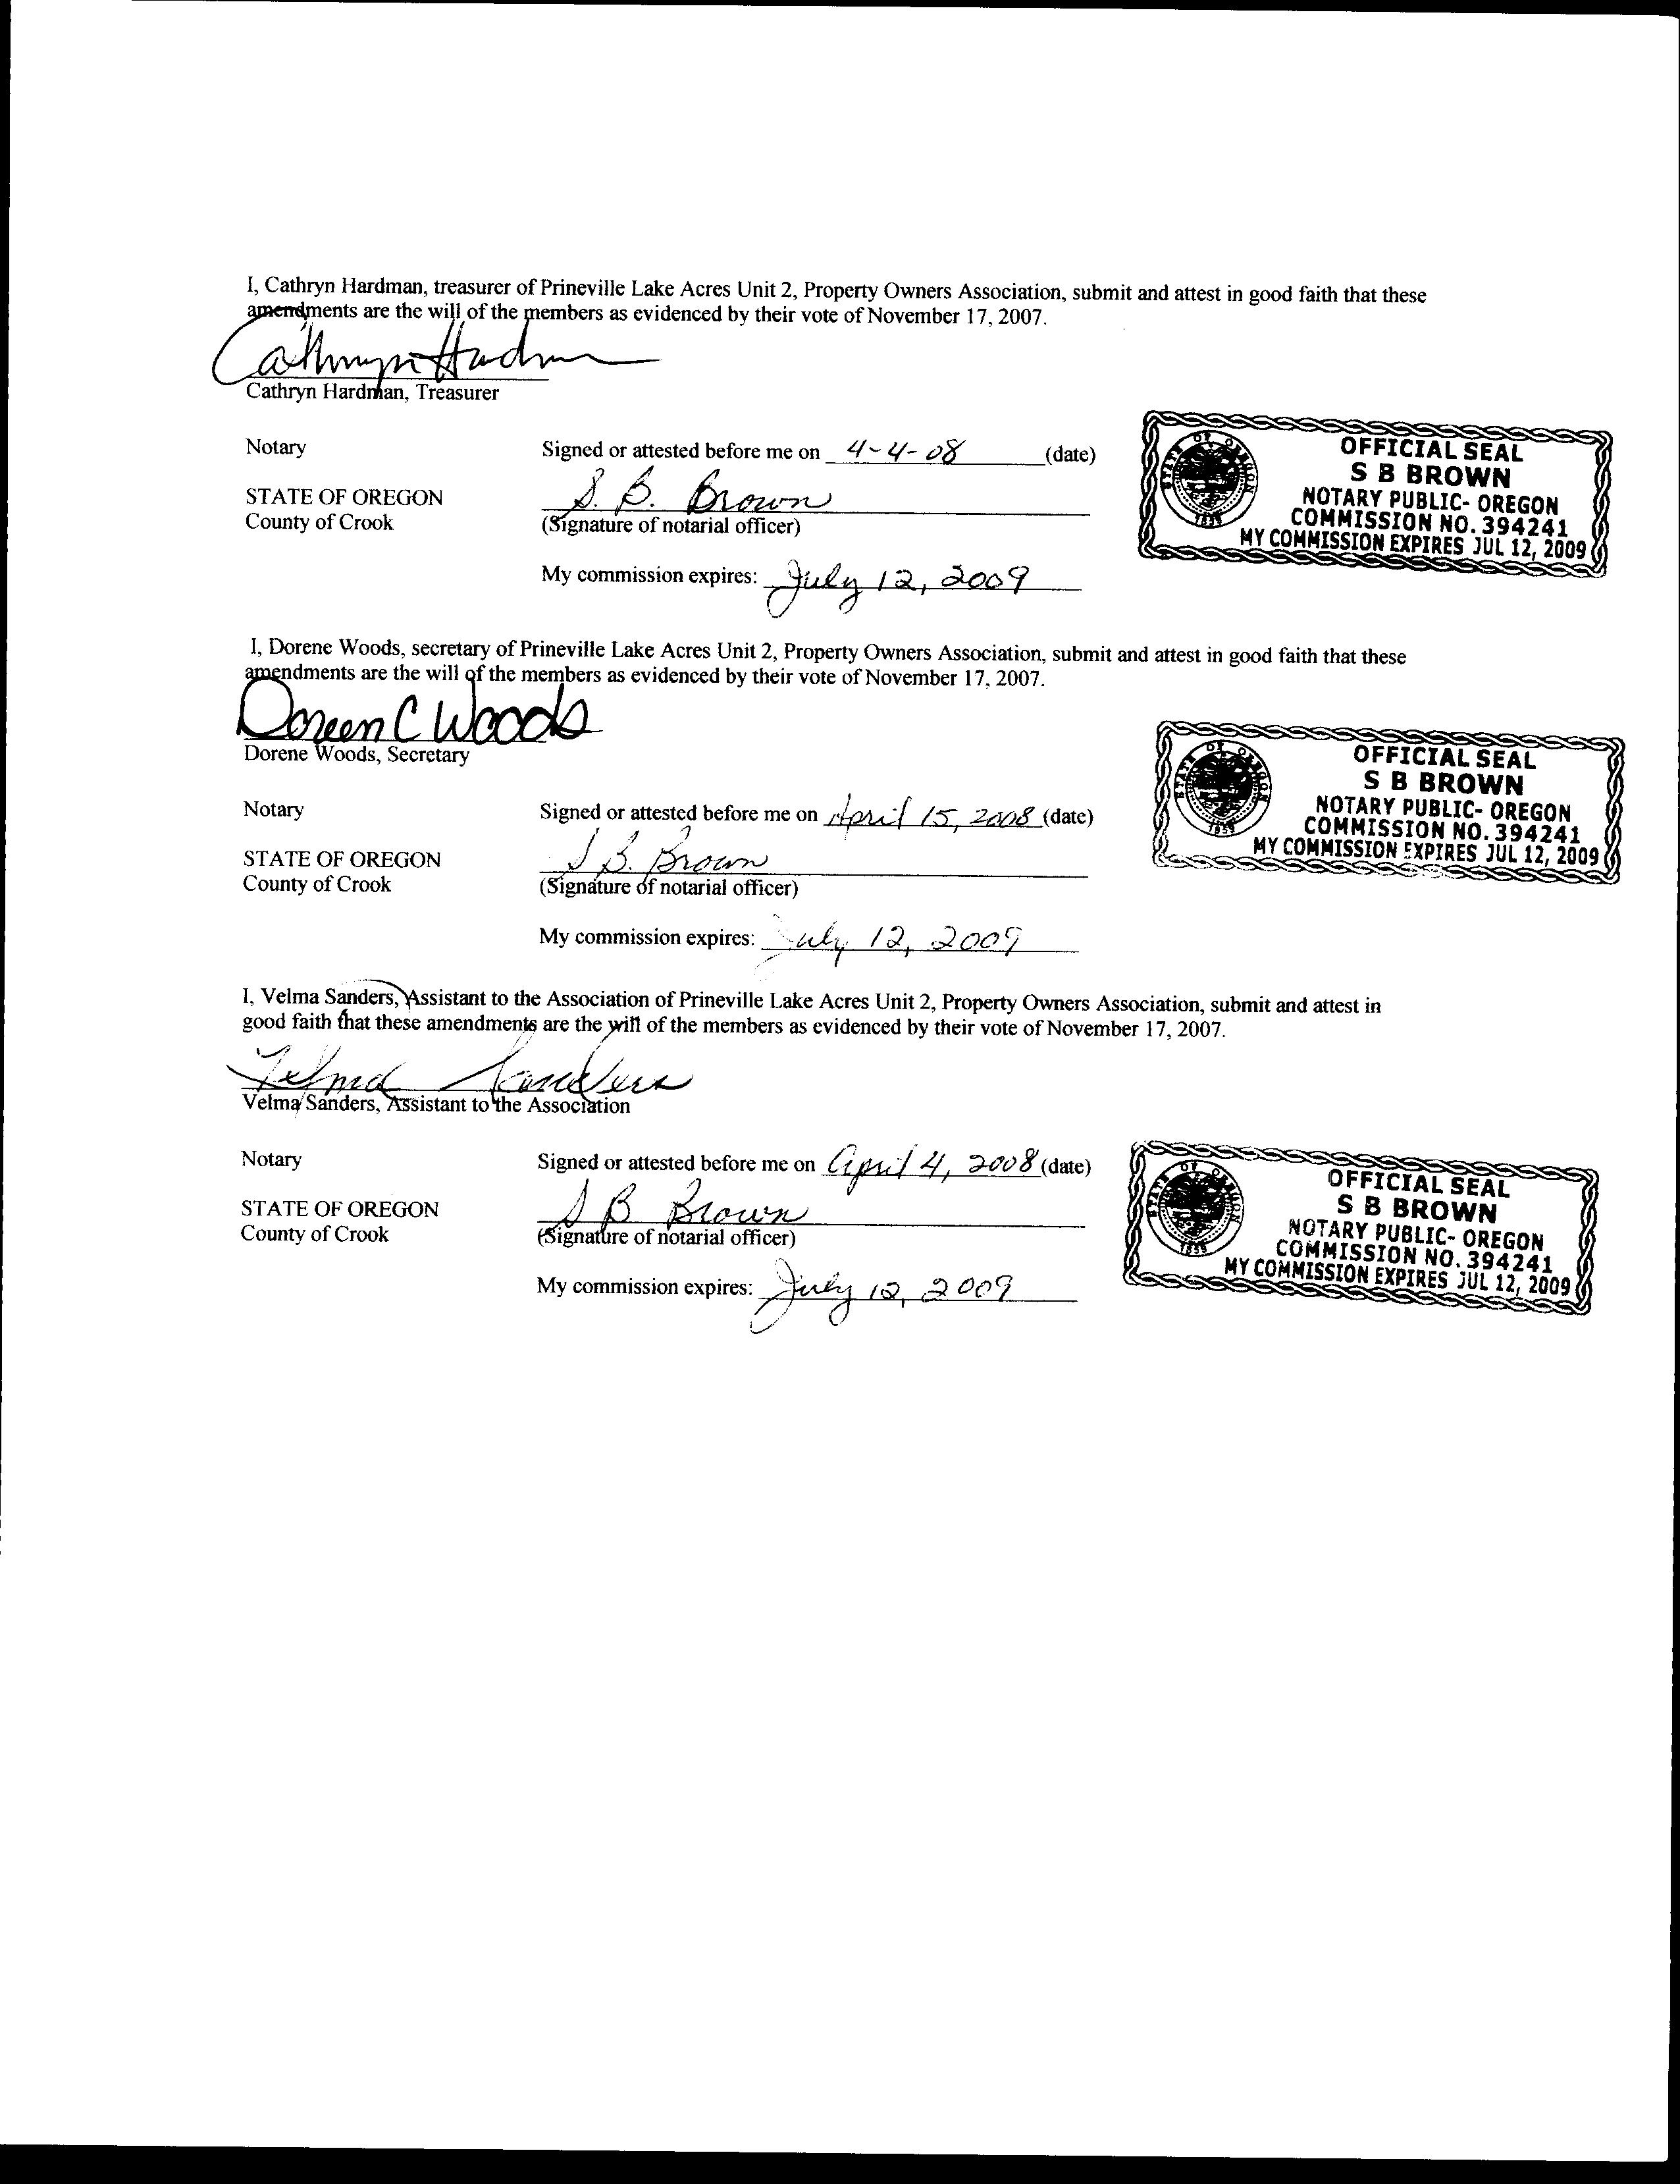 I, Cathryn Hardman, treasurer of Prineville Lake Acres Unit 2, Property Owners Association, submit and attest in good faith that these
amendments are the will of the members as evidenced by their vote of November 17, 2007.
Cathryn Hardman
Cathryn Hardman, Treasurer
Notary Signed or attested before me on 4-4-08 (date)
STATE OF OREGON S. B. Brown
County of Crook (Signature of notarial officer)
My commission expires: July 12, 2009
OFFICIAL SEAL
S B BROWN
NOTARY PUBLIC- OREGON
COMMISSION NO. 394241
MY COMMISSION EXPIRES JUL 12, 2009
STATE OF OREGON
1859
I, Dorene Woods, secretary of Prineville Lake Acres Unit 2, Property Owners Association, submit and attest in good faith that these
amendments are the will of the members as evidenced by their vote of November 17, 2007.
Doreen C Woods
Dorene Woods, Secretary
Notary Signed or attested before me on April 15, 2008 (date)
STATE OF OREGON S B. Brown
County of Crook (Signature of notarial officer)
My commission expires: July 12, 2009
OFFICIAL SEAL
S B BROWN
NOTARY PUBLIC- OREGON
COMMISSION NO. 394241
MY COMMISSION EXPIRES JUL 12, 2009
STATE OF OREGON
1859
I, Velma Sanders, Assistant to the Association of Prineville Lake Acres Unit 2, Property Owners Association, submit and attest in
good faith that these amendments are the will of the members as evidenced by their vote of November 17, 2007.
Velma Sanders
Velma Sanders, Assistant to the Association
Notary Signed or attested before me on April 4, 2008 (date)
STATE OF OREGON S B Brown
County of Crook (Signature of notarial officer)
My commission expires: July 12, 2009
OFFICIAL SEAL
S B BROWN
NOTARY PUBLIC- OREGON
COMMISSION NO. 394241
MY COMMISSION EXPIRES JUL 12, 2009
STATE OF OREGON
1859